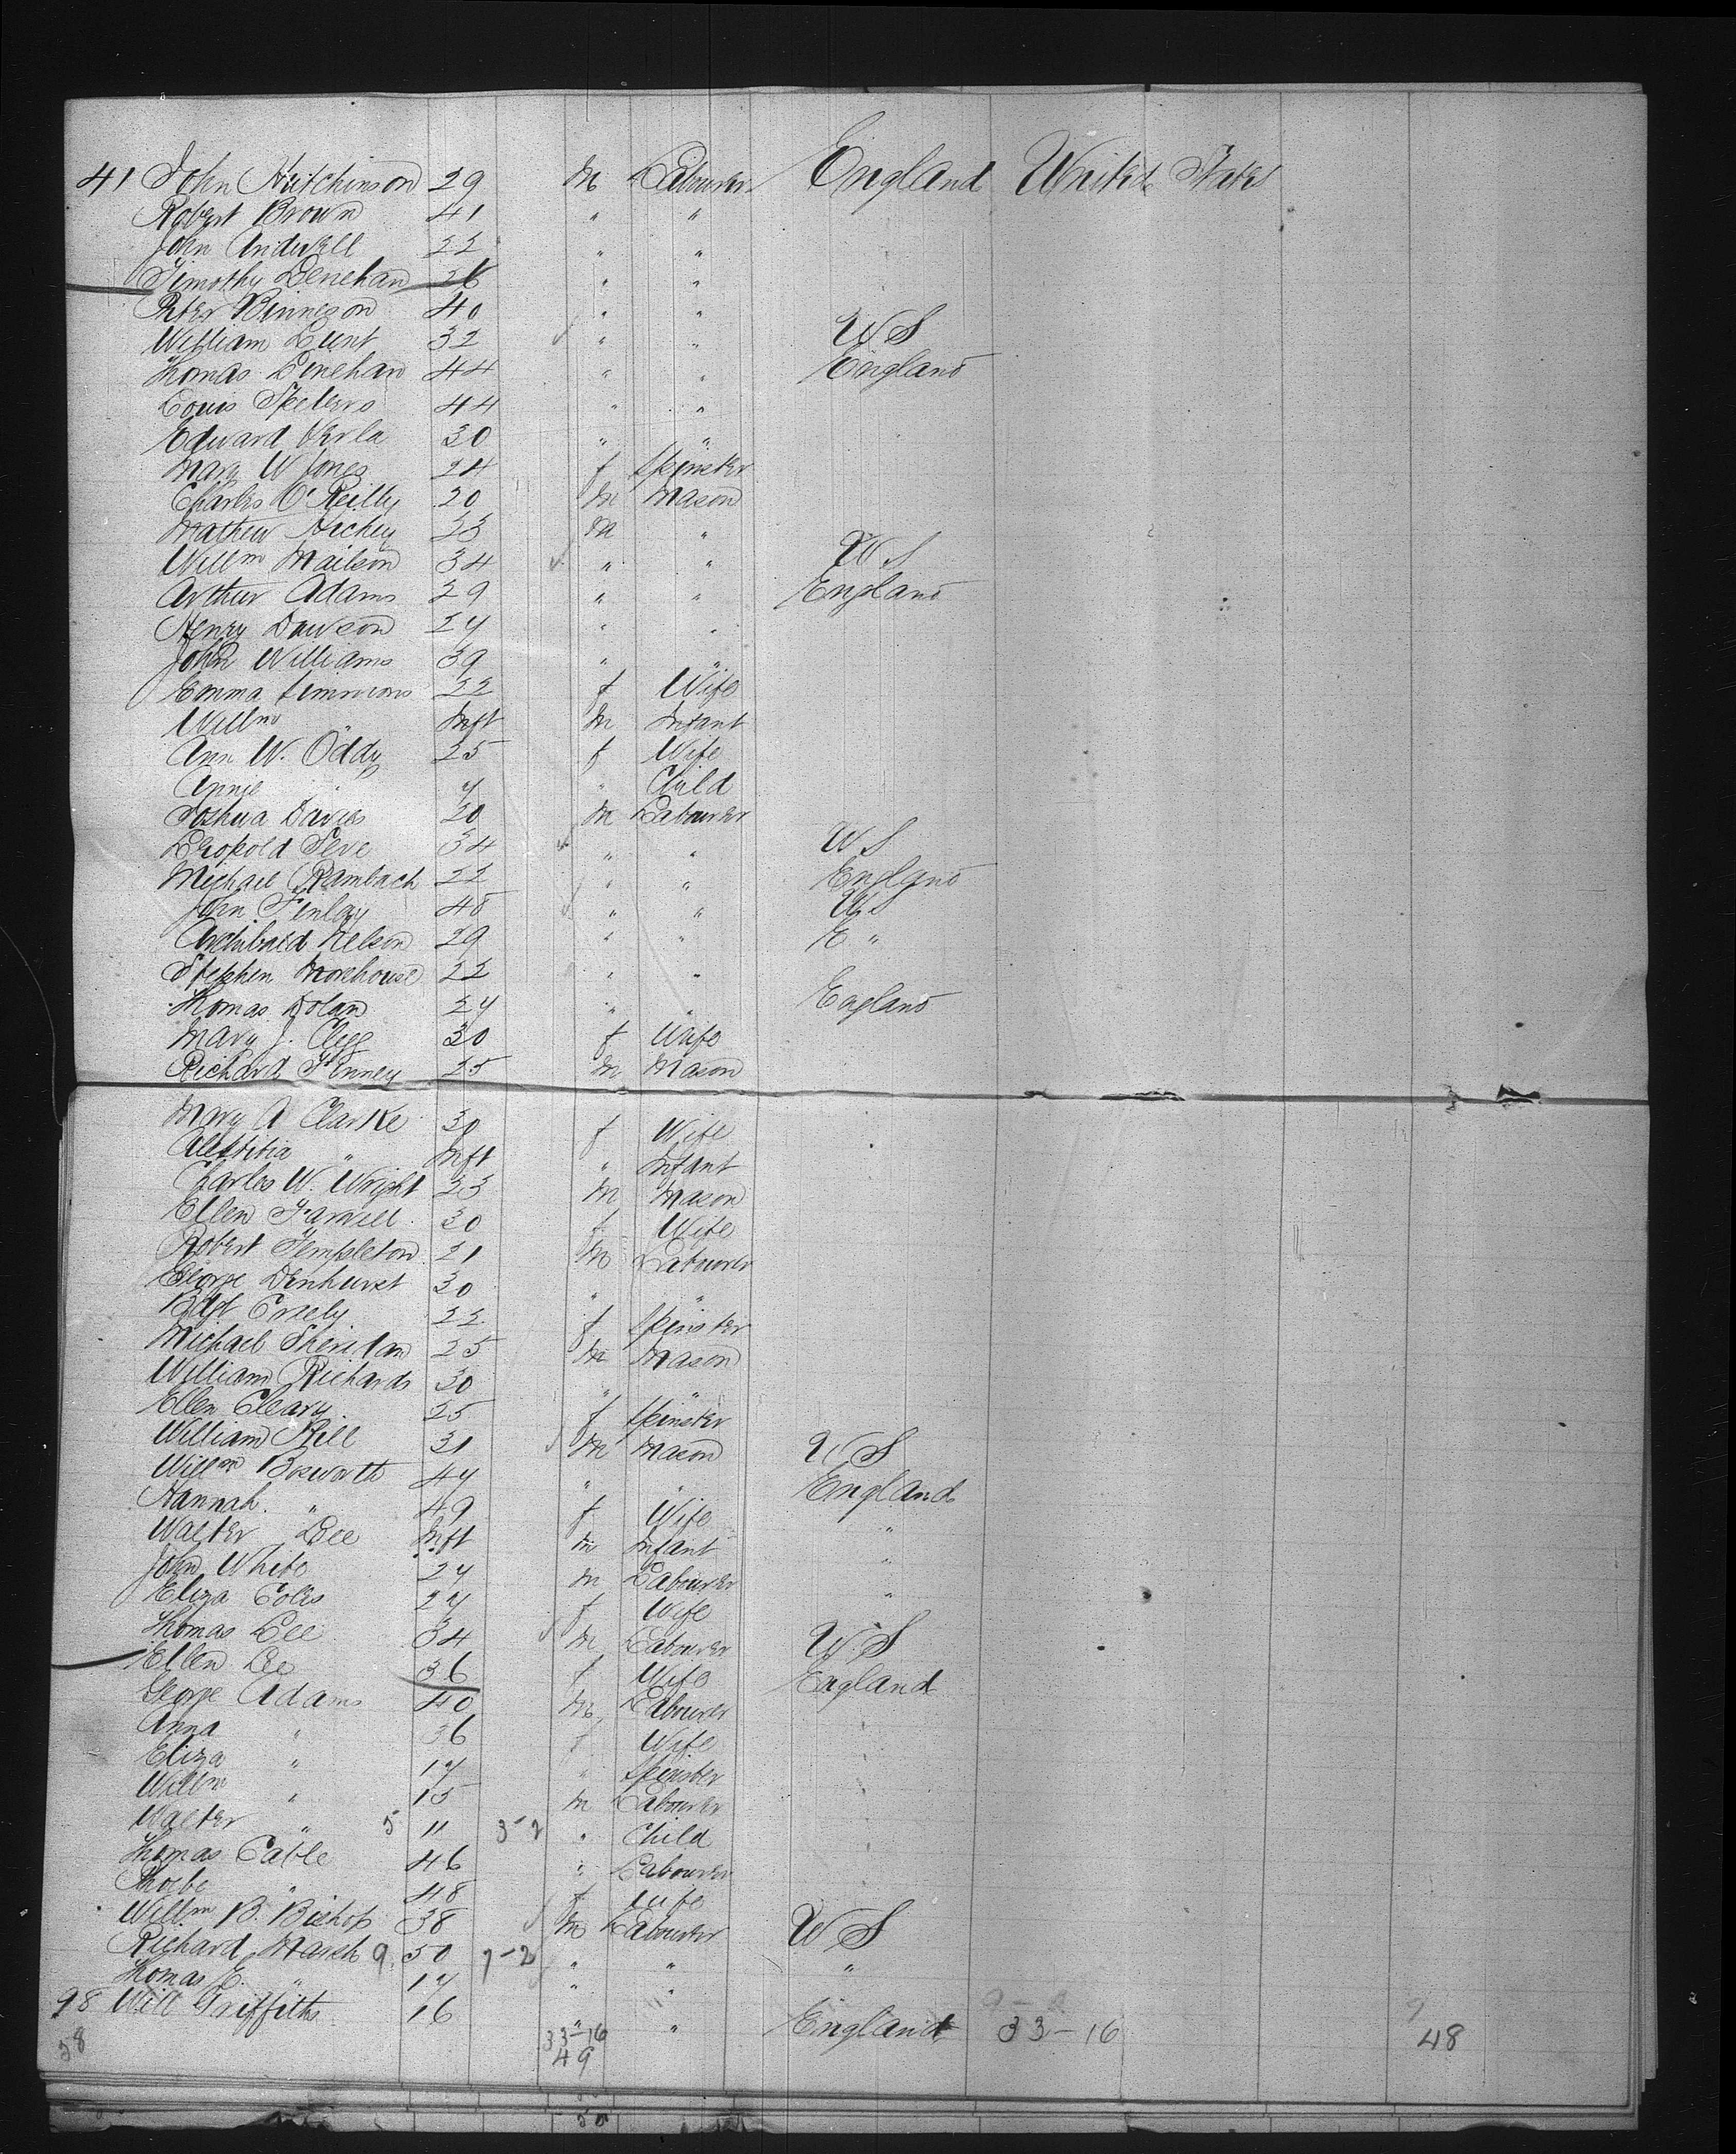 41 John Hutchinson 29 M Labourer England United States
Robert Brown 41 " "
John Andwell 22 " "
Timothy Denehan 26 " "
Peter Binnegon 40 " "
William Lunt 32 " " U S
Thomas Denehan 44 " " England
Louis Speters 44 " "
Edward 30 " "
Mary W Jones 24 f Spinster
Charles O'Reilly 20 M Mason
Mathew Hickey 23 M "
Willm Mailson 34 " " U S
Arthur Adams 29 " " England
Henry Dawson 27 " "
John Williams 39 " "
Emma Simmons 22 f Wife
Willm " Inft M Infant
Ann W. Oddy 25 f Wife
Annie " 7 " Child
Joshua Davies 20 M Labourer
Leopold Seve 34 " " U S
Michael Rambach 22 " " England
John Finlay 48 " " U S
Archibald Nelson 29 " " E "
Stephen Morehouse 22 " "
Thomas Dolan 27 " " England
Mary J. Clegg 30 f Wife
Richard Finney 25 M Mason
Mary A Clarke 30 f Wife
" Inft " Infant
Charles W. Wright 23 M Mason
Ellen Farnell 30 f Wife
Robert Templeton 21 M Labourer
George Denhurst 30 " "
Bdgt 22 f Spinster
Michael Sheridan 25 M Mason
William Richards 30 " "
Ellen Cleary 25 f Spinster
William Hill 31 M Mason U S
Willm Bosworth 47 " " England
Hannah " 49 f Wife "
Walter Lee Inft M Infant "
John White 27 M Labourer "
Eliza Coles 27 f Wife
Thomas Lee 34 M Labourer U S
Ellen Lee 36 f Wife England
George Adams 40 M Labourer
Anna " 36 f Wife
Eliza " 17 " Spinster
Willm " 15 M Labourer
Walter " 5 11 3-2 " Child
Thomas Cable 46 " Labourer
Phoebe " 48 f Wife
Willm B. Bishop 38 M Labourer U S
Richard Marsh 9 50 7-2 " " "
Thomas E. " 17 " "
98 Will Griffiths 16 " " England 33-16
58 33-16 48
49
50